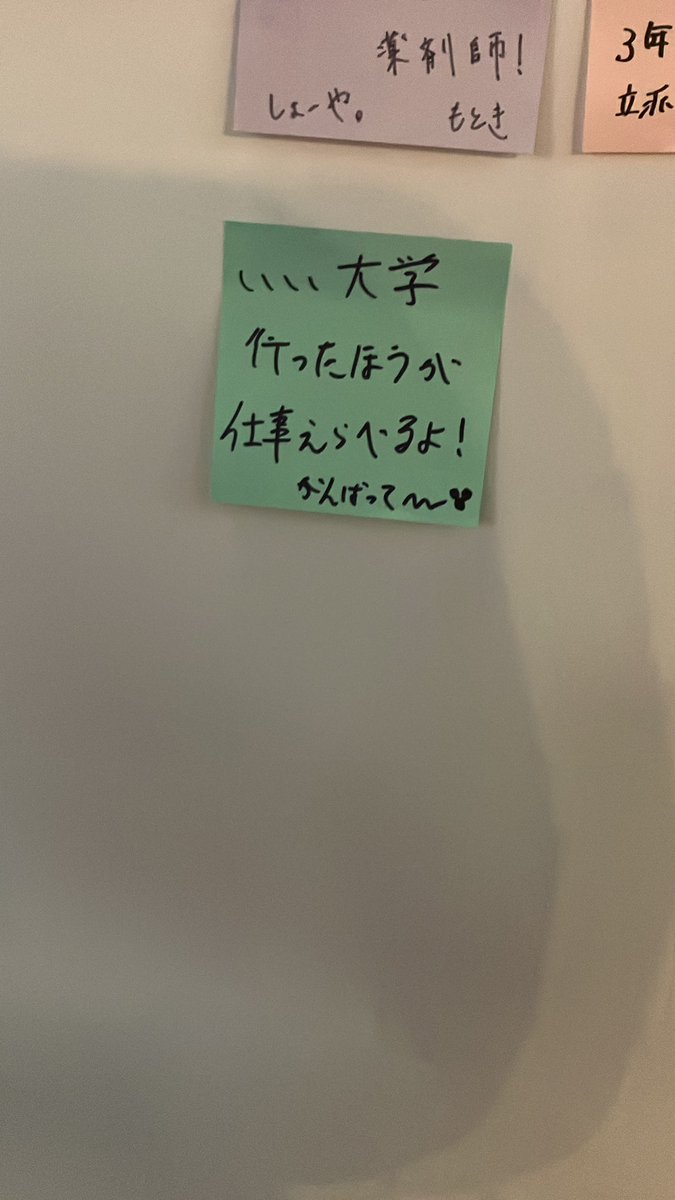 薬剤師!
しょーや。 もとき
3年
立派
いい大学
行ったほうが
仕事えらべるよ!
がんばって〜